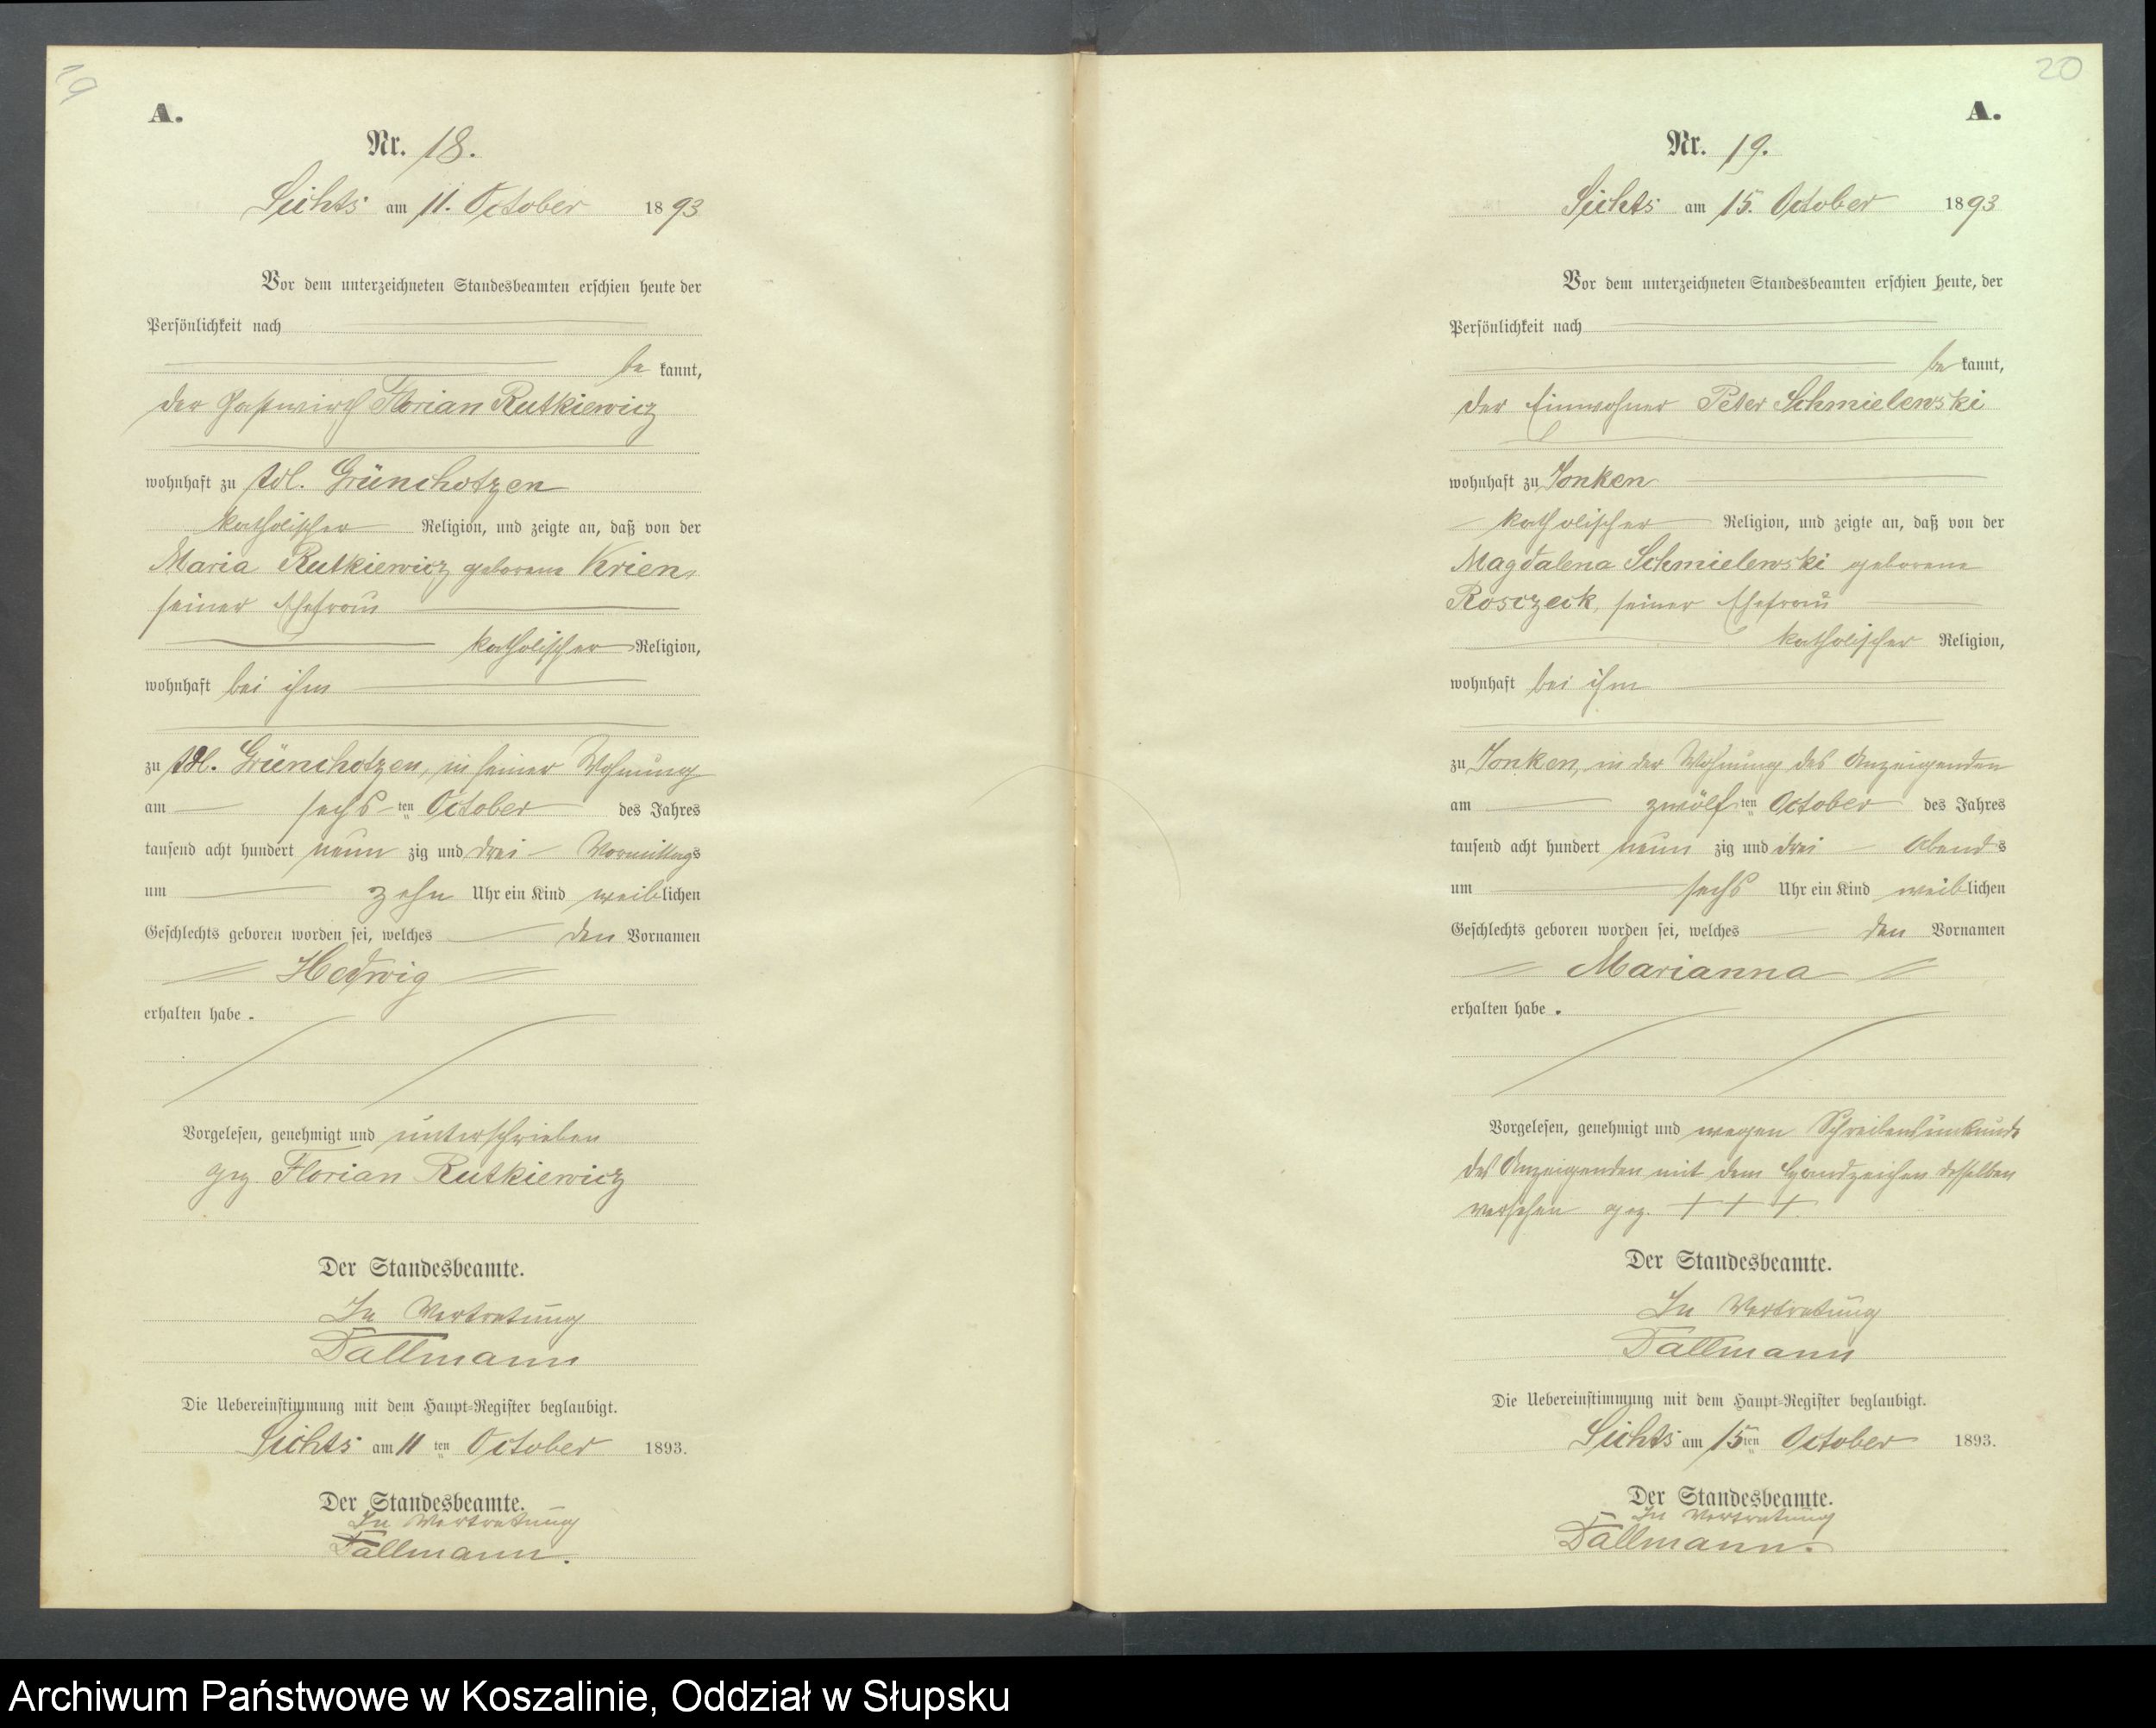 19
A.
Nr. 18.
Sichts am 11. October 1893
Vor dem unterzeichneten Standesbeamten erschien heute der
Persönlichkeit nach
be kannt,
der Gastwirth Florian Rutkiewicz
wohnhaft zu Adl. Grünchotzen
katholischer Religion, und zeigte an, daß von der
Maria Rutkiewicz geborene Krien,
seiner Ehefrau
katholischer Religion,
wohnhaft bei ihm
zu Adl. Grünchotzen, in seiner Wohnung
am sechs ten October des Jahres
tausend acht hundert neun zig und drei Vormittags
um zehn Uhr ein Kind weiblichen
Geschlechts geboren worden sei, welches den Vornamen
Hedwig
erhalten habe.
Vorgelesen, genehmigt und unterschrieben
gez. Florian Rutkiewicz
Der Standesbeamte.
In Vertretung
Dallmann
Die Uebereinstimmung mit dem Haupt-Register beglaubigt.
Sichts am 11 ten October 1893.
Der Standesbeamte.
In Vertretung
Dallmann.
20
A.
Nr. 19.
Sichts am 15. October 1893
Vor dem unterzeichneten Standesbeamten erschien heute, der
Persönlichkeit nach
be kannt,
der Einwohner Peter Schmielewski
wohnhaft zu Jonken
katholischer Religion, und zeigte an, daß von der
Magdalena Schmielewski geborene
Rosczeck, seiner Ehefrau
katholischer Religion,
wohnhaft bei ihm
zu Jonken, in der Wohnung des Anzeigenden
am zwölf ten October des Jahres
tausend acht hundert neun zig und drei Abends
um sechs Uhr ein Kind weiblichen
Geschlechts geboren worden sei, welches den Vornamen
Marianna
erhalten habe.
Vorgelesen, genehmigt und wegen Schreibensunkunde
des Anzeigenden mit dem Handzeichen desselben
versehen gez. + + +
Der Standesbeamte.
In Vertretung
Dallmann
Die Uebereinstimmung mit dem Haupt-Register beglaubigt.
Sichts am 15 ten October 1893.
Der Standesbeamte.
In Vertretung
Dallmann.
Archiwum Państwowe w Koszalinie, Oddział w Słupsku